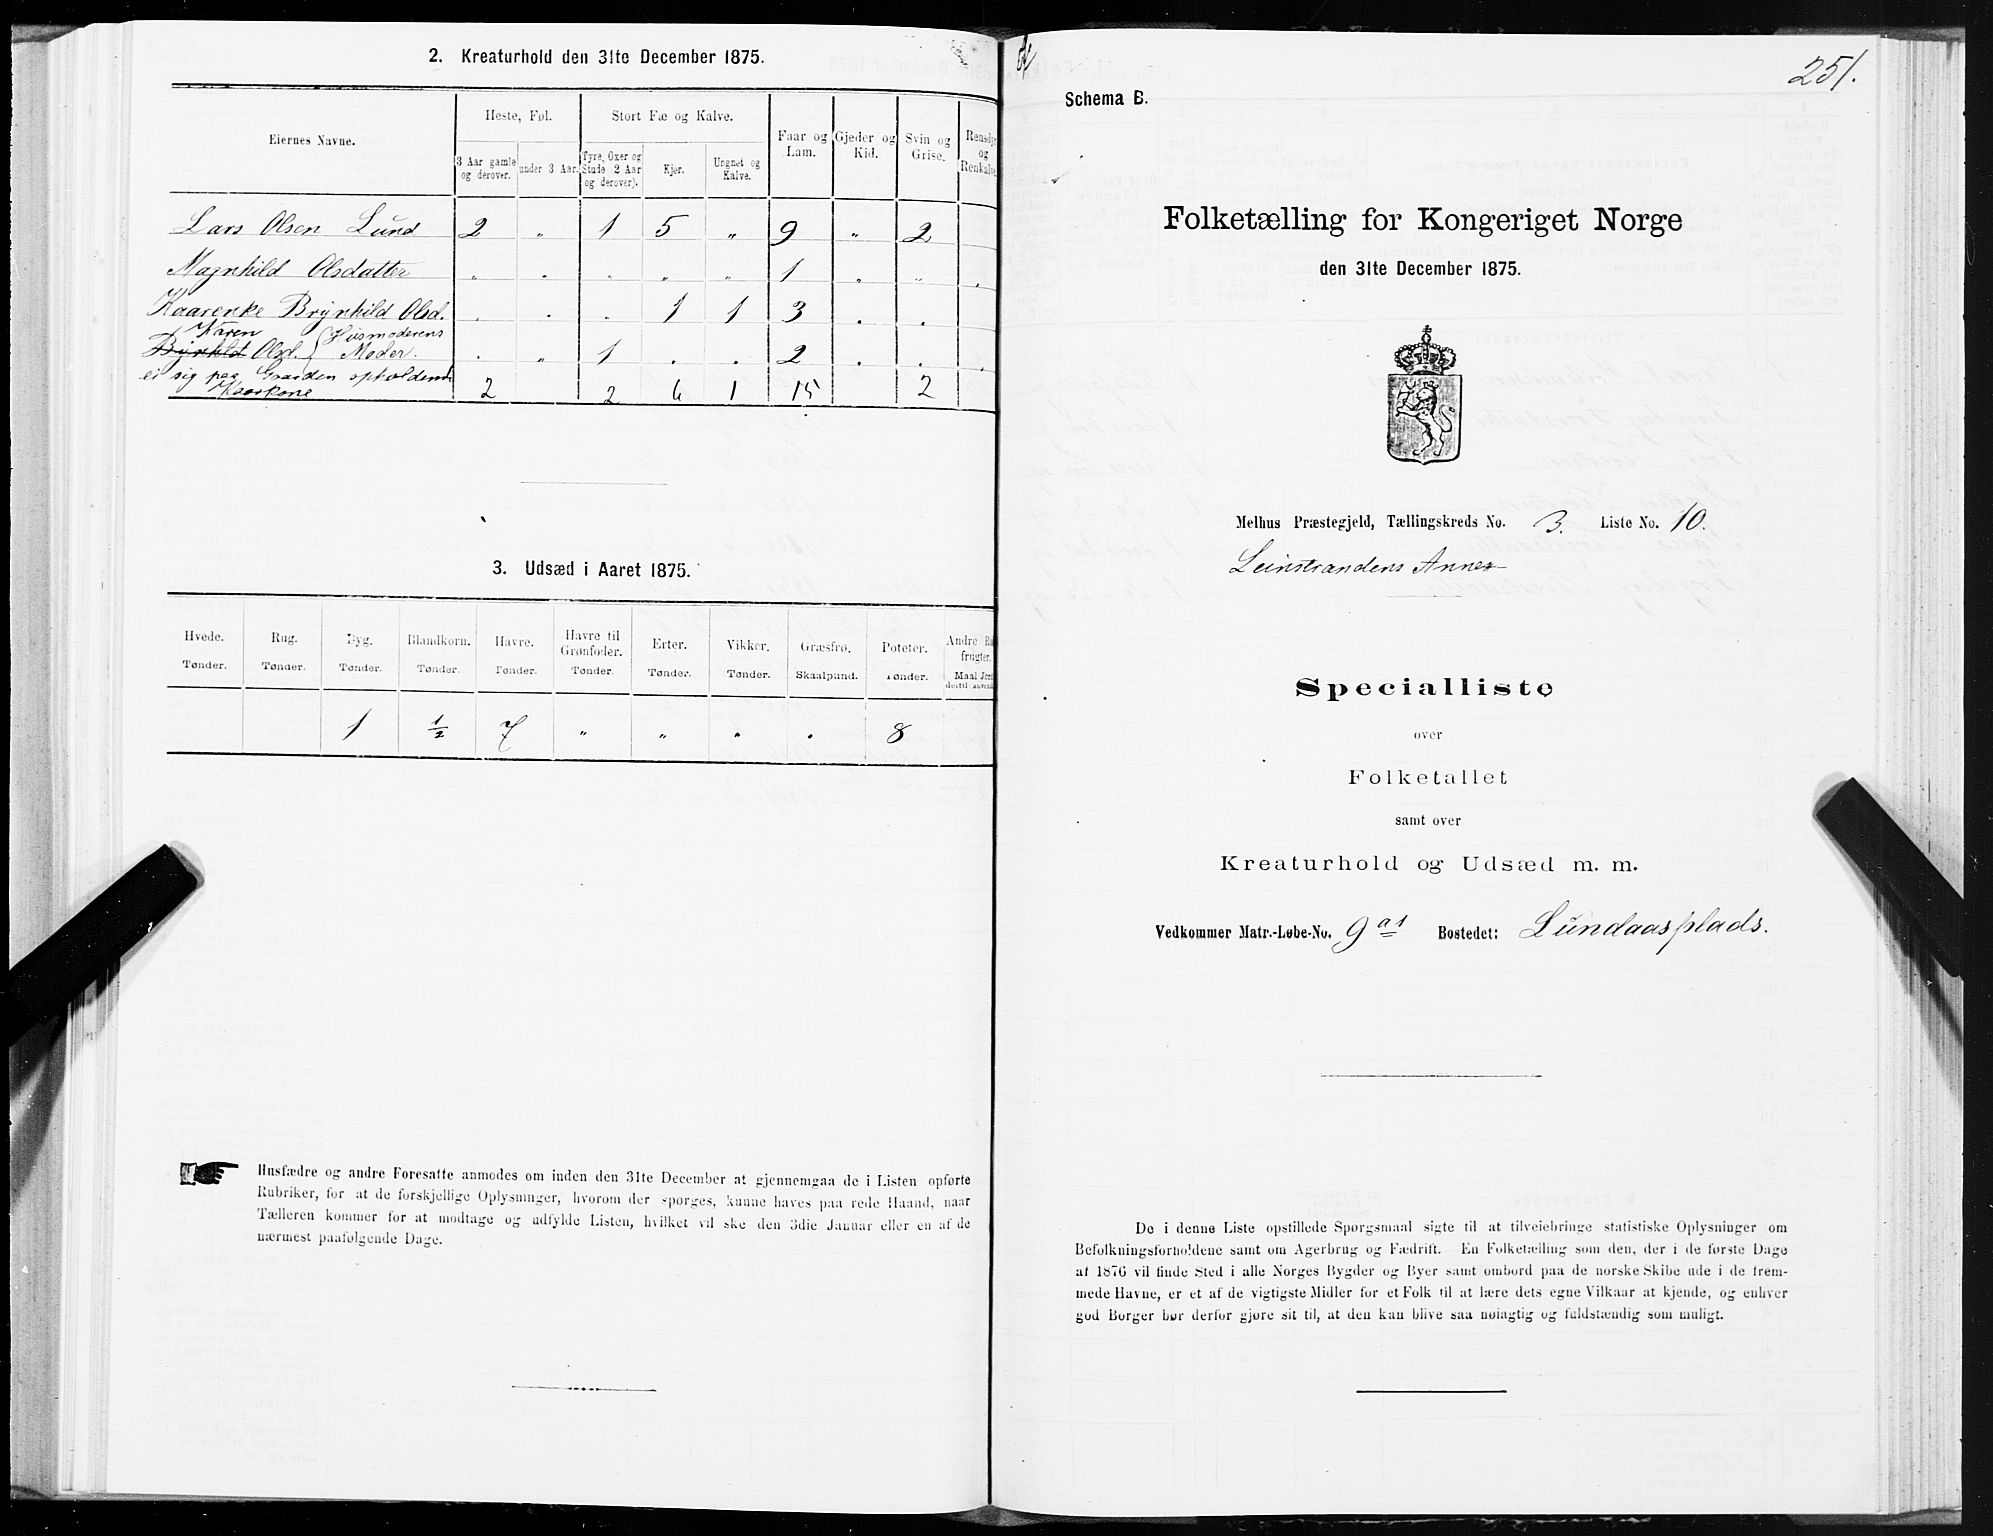 2. Kreaturhold den 31te December 1875.
Eiernes Navne.
Heste, Føl.
Stort Fæ og Kalve.
Faar og Lam.
Gjeder og Kid.
Svin og Grise.
Rensdyr og Renkalve
3 Aar gamle og derover.
under 3 Aar.
Tyre, Oxer og Stude 2 Aar og derover).
Kjør.
Ungnet og Kalve.
Lars Olsen Lund 2 „ 1 5 „ 9 „ 2
Magnhild Olsdatter „ „ „ „ „ 1 „ „ „
Kaarenke Brynhild Olsd. . . . 1 1 3 . .
Karen
Brynhild Olsd. { Husmoderens Moder. . „ 1 . . 2 . . .
ei sig paa Gaarden opholdende
Kaarkone 2 2 6 1 15 2
3. Udsæd i Aaret 1875.
Hvede. Rug. Byg. Blandkorn. Havre. Havre til Grønfoder. Erter. Vikker. Græsfrø. Poteter. Andre Ro frugter.
Tønder. Tønder. Tønder. Tønder. Tønder. Tønder. Tønder. Tønder. Skaalpund. Tønder. Maal Jord dertil anvendt
1 1/2 7 „ „ „ „ 8
Husfædre og andre Foresatte anmodes om inden den 31te December at gjennemgaa de i Listen opførte
Rubriker, for at de forskjellige Oplysninger, hvorom der spørges, kunne haves paa rede Haand, naar
Tælleren kommer for at modtage og udfylde Listen, hvilket vil ske den 3die Januar eller en af de
nærmest paafølgende Dage.
251.
Schema B.
Folketælling for Kongeriget Norge
den 31te December 1875.
Melhus Præstegjeld, Tællingskreds No. 3. Liste No. 10.
Leinstrandens Annex
Specialliste
over
Folketallet
samt over
Kreaturhold og Udsæd m. m.
Vedkommer Matr.-Løbe-No. 9 a1 Bostedet: Lundaasplads.
De i denne Liste opstillede Spørgsmaal sigte til at tilveiebringe statistiske Oplysninger om
Befolkningsforholdene samt om Agerbrug og Fædrift. En Folketælling som den, der i de første Dage
af 1876 vil finde Sted i alle Norges Bygder og Byer samt ombord paa de norske Skibe ude i de frem-
mede Havne, er et af de vigtigste Midler for et Folk til at lære dets egne Vilkaar at kjende, og enhver
god Borger bør derfor gjøre sit til, at den kan blive saa nøiagtig og fuldstændig som muligt.